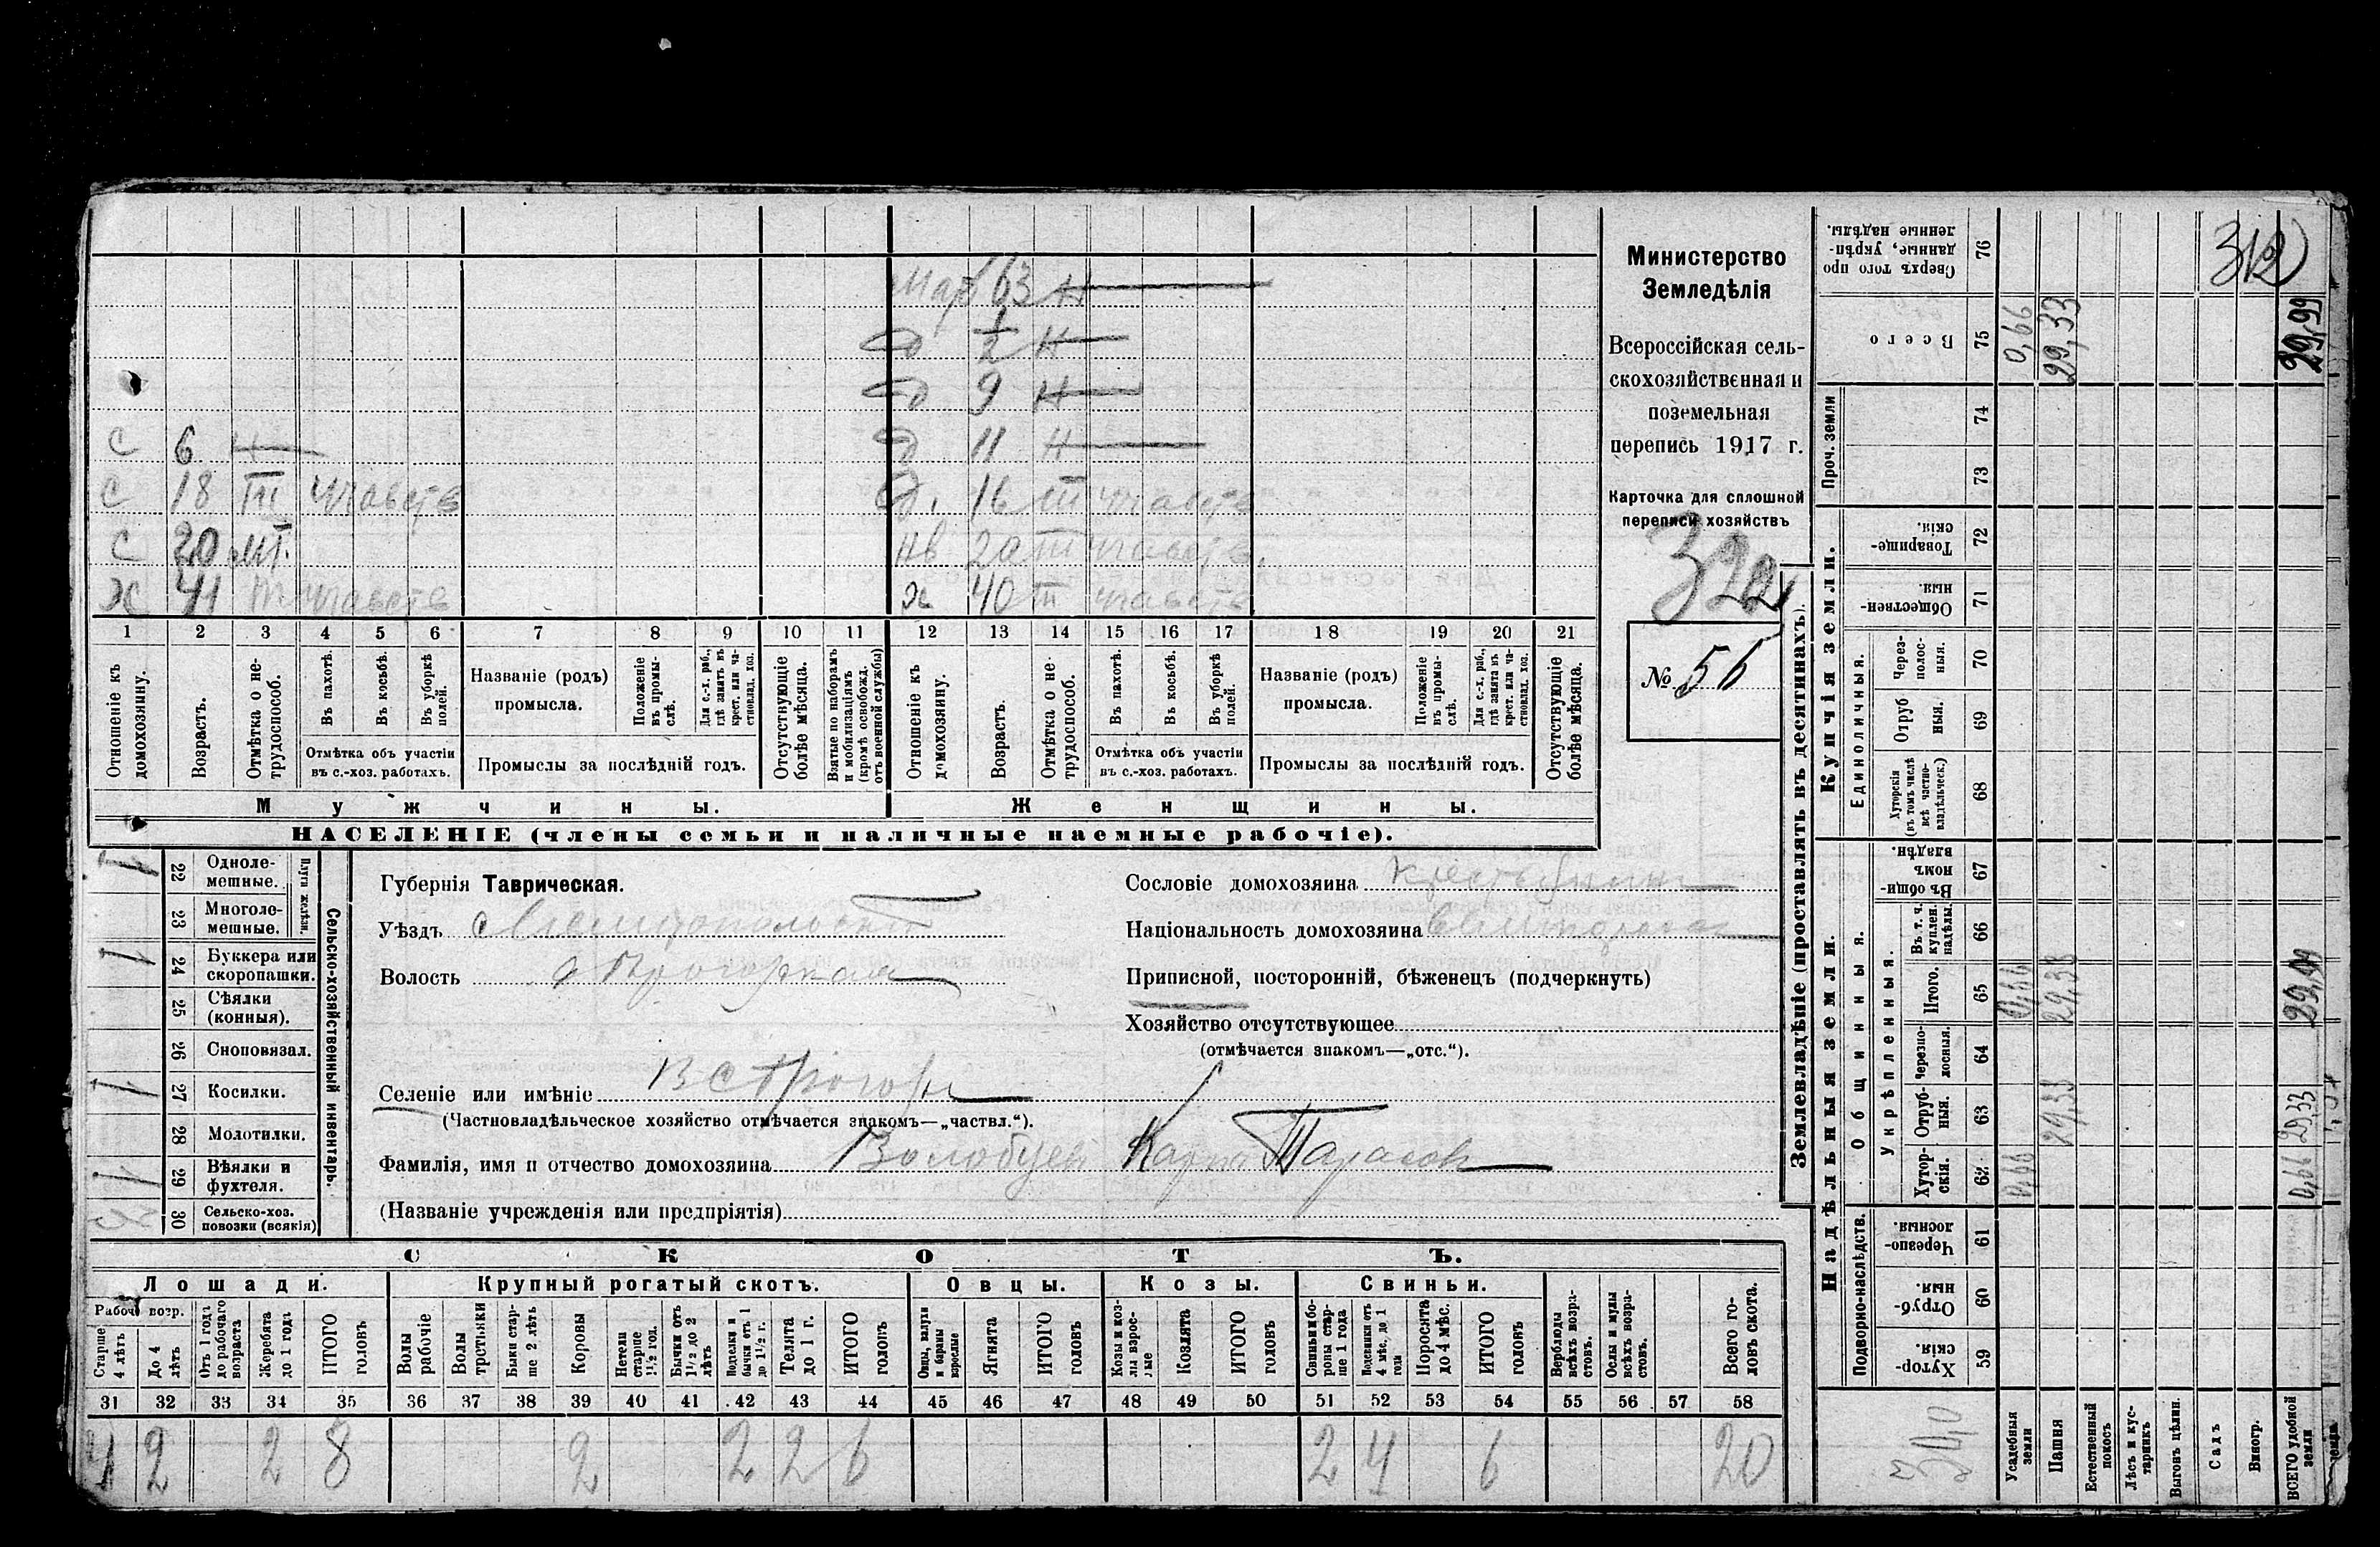 Министерство
Земледѣлія
Всероссійская сель-
скохозяйственная и
поземельная
перепись 1917 г.
Карточка для сплошной
переписи хозяйствъ
322
№ 56
мать 63 н
д ½ н
д 9 н
с 6 н
д 11 н
с 18 ПТ участв
д. 16 ПТ участв
с 20 МТ.
нв 20 ПТ участв.
х 41 ПТ участв
х 40 ПТ участв
1 2 3 4 5 6 7 8 9 10 11 12 13 14 15 16 17 18 19 20 21
Отношеніе къ домохозяину.
Возрастъ.
Отмѣтка о не-трудоспособ.
Въ пахотѣ.
Въ косьбѣ.
Въ уборкѣ полей.
Отмѣтка объ участіи въ с.-хоз. работахъ.
Названіе (родъ) промысла.
Положеніе въ промы-слѣ.
Для с.-х. раб., гдѣ занятъ въ крест. или ча-стновлад. хоз.
Промыслы за послѣдній годъ.
Отсутствующіе болѣе мѣсяца.
Взятые по наборамъ и мобилизаціямъ (кромѣ освобожд. отъ военной службы)
Отношеніе къ домохозяину.
Возрастъ.
Отмѣтка о не-трудоспособ.
Въ пахотѣ.
Въ косьбѣ.
Въ уборкѣ полей.
Отмѣтка объ участіи въ с.-хоз. работахъ.
Названіе (родъ) промысла.
Положеніе въ промы-слѣ.
Для с.-х. раб., гдѣ занята въ крест. или ча-стновлад. хоз.
Промыслы за послѣдній годъ.
Отсутствующіе болѣе мѣсяца.
Мужчины.
Женщины.
НАСЕЛЕНІЕ (члены семьи и наличные наемные рабочіе).
Сельско-хозяйственный инвентарь.
Плуги желѣзн.
1 22 Одноле-мешные.
23 Многоле-мешные.
1 24 Буккера или скоропашки.
25 Сѣялки (конныя).
26 Сноповязал.
1 27 Косилки.
28 Молотилки.
1 29 Вѣялки и фухтеля.
30 Сельско-хоз. повозки (всякія)
Губернія Таврическая.
Уѣздъ Мелитопольскій
Волость
Селеніе или имѣніе
(Частновладѣльческое хозяйство отмѣчается знакомъ—„частвл.“).
Фамилія, имя и отчество домохозяина Волобуев Карпъ Тарасов
(Названіе учрежденія или предпріятія)
Сословіе домохозяина крестьянинъ
Національность домохозяина
Приписной, посторонній, бѣженецъ (подчеркнуть)
Хозяйство отсутствующее
(отмѣчается знакомъ—„отс.“).
СКОТЪ.
Лошади.
Крупный рогатый скотъ.
Овцы.
Козы.
Свиньи.
Рабоч. возр.
Старше 4 лѣтъ
До 4 лѣтъ
Отъ 1 года до рабочаго возраста
Жеребята до 1 года
ИТОГО головъ
Волы рабочіе
Волы третьяки
Быки стар-ше 2 лѣтъ
Коровы
Нетели старше 1½ год.
Бычки отъ 1½ до 2 лѣтъ
Подтелки и бычки отъ 1 до 1½ г.
Телята до 1 г.
ИТОГО головъ
Овцы, валухи и бараны взрослые
Ягнята
ИТОГО головъ
Козы и коз-лы взрос-лые
Козлята
ИТОГО головъ
Свиньи и бо-ровы стар-ше 1 года
Подсвинки отъ 4 мѣс. до 1 года
Поросята до 4 мѣс.
ИТОГО головъ
Верблюды всѣхъ возра-стовъ.
Ослы и мулы всѣхъ возра-стовъ.
Всего го-ловъ скота.
31 32 33 34 35 36 37 38 39 40 41 42 43 44 45 46 47 48 49 50 51 52 53 54 55 56 57 58
4 2 2 8 2 2 2 6 2 4 6 20
Землевладѣніе (проставлять въ десятинахъ).
Надѣльныя земли.
Купчія земли.
Подворно-наслѣдств.
Общинныя.
Укрѣпленныя.
Единоличныя.
Проч. земли
59 Хутор-скія.
60 Отруб-ныя.
61 Черезпо-лосныя.
62 Хутор-скія.
63 Отруб-ныя.
64 Черезпо-лосныя.
65 Итого.
66 Въ т. ч. куплен. надѣлы.
67 Въ общи-номъ владѣн.
68 Хуторскія (въ томъ числѣ всѣ частно-владѣльческ.)
69 Отруб ныя.
70 Через-полос-ныя.
71 Обществен-ныя
72 Товарище-скія.
73
74
75 Всего
76 Сверхъ того про данные, укрѣп-ленные надѣлы.
Усадебныя земли 0,66 0,66 0,66
Пашня 29,33 29,33 29,33
Естественный покосъ
Лѣсъ и кус-тарникъ
Выгонъ цѣлин.
Садъ
Виногр.
ВСЕГО удобной земли 0,66 29,33 29,99 29,99
312
30,0